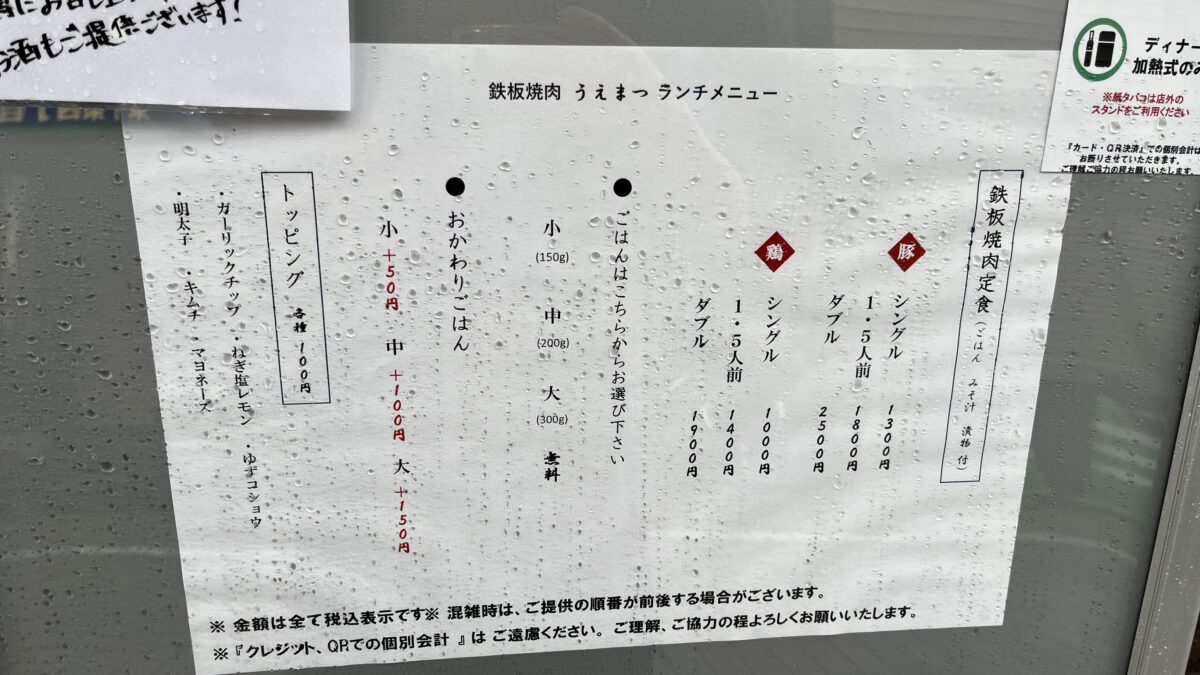 お酒もご提供ございます!
ディナー
加熱式のみ
※紙タバコは店外の
スタンドをご利用ください
『カード・QR決済』での個別会計は
お断りさせていただきます。
ご理解ご協力の程お願いいたします。
鉄板焼肉 うえまつ ランチメニュー
鉄板焼肉定食(ごはん みそ汁 漬物 付)
豚
シングル 1300円
1・5人前 1800円
ダブル 2500円
鶏
シングル 1000円
1・5人前 1400円
ダブル 1900円
●ごはんはこちらからお選び下さい
小(150g) 中(200g) 大(300g) 無料
●おかわりごはん
小+50円 中+100円 大+150円
トッピング 各種100円
・ガーリックチップ ・ねぎ塩レモン ・ゆずコショウ
・明太子 ・キムチ ・マヨネーズ
※ 金額は全て税込表示です※ 混雑時は、ご提供の順番が前後する場合がございます。
※『クレジット、QRでの個別会計 』は ご遠慮ください。ご理解、ご協力の程よろしくお願いいたします。